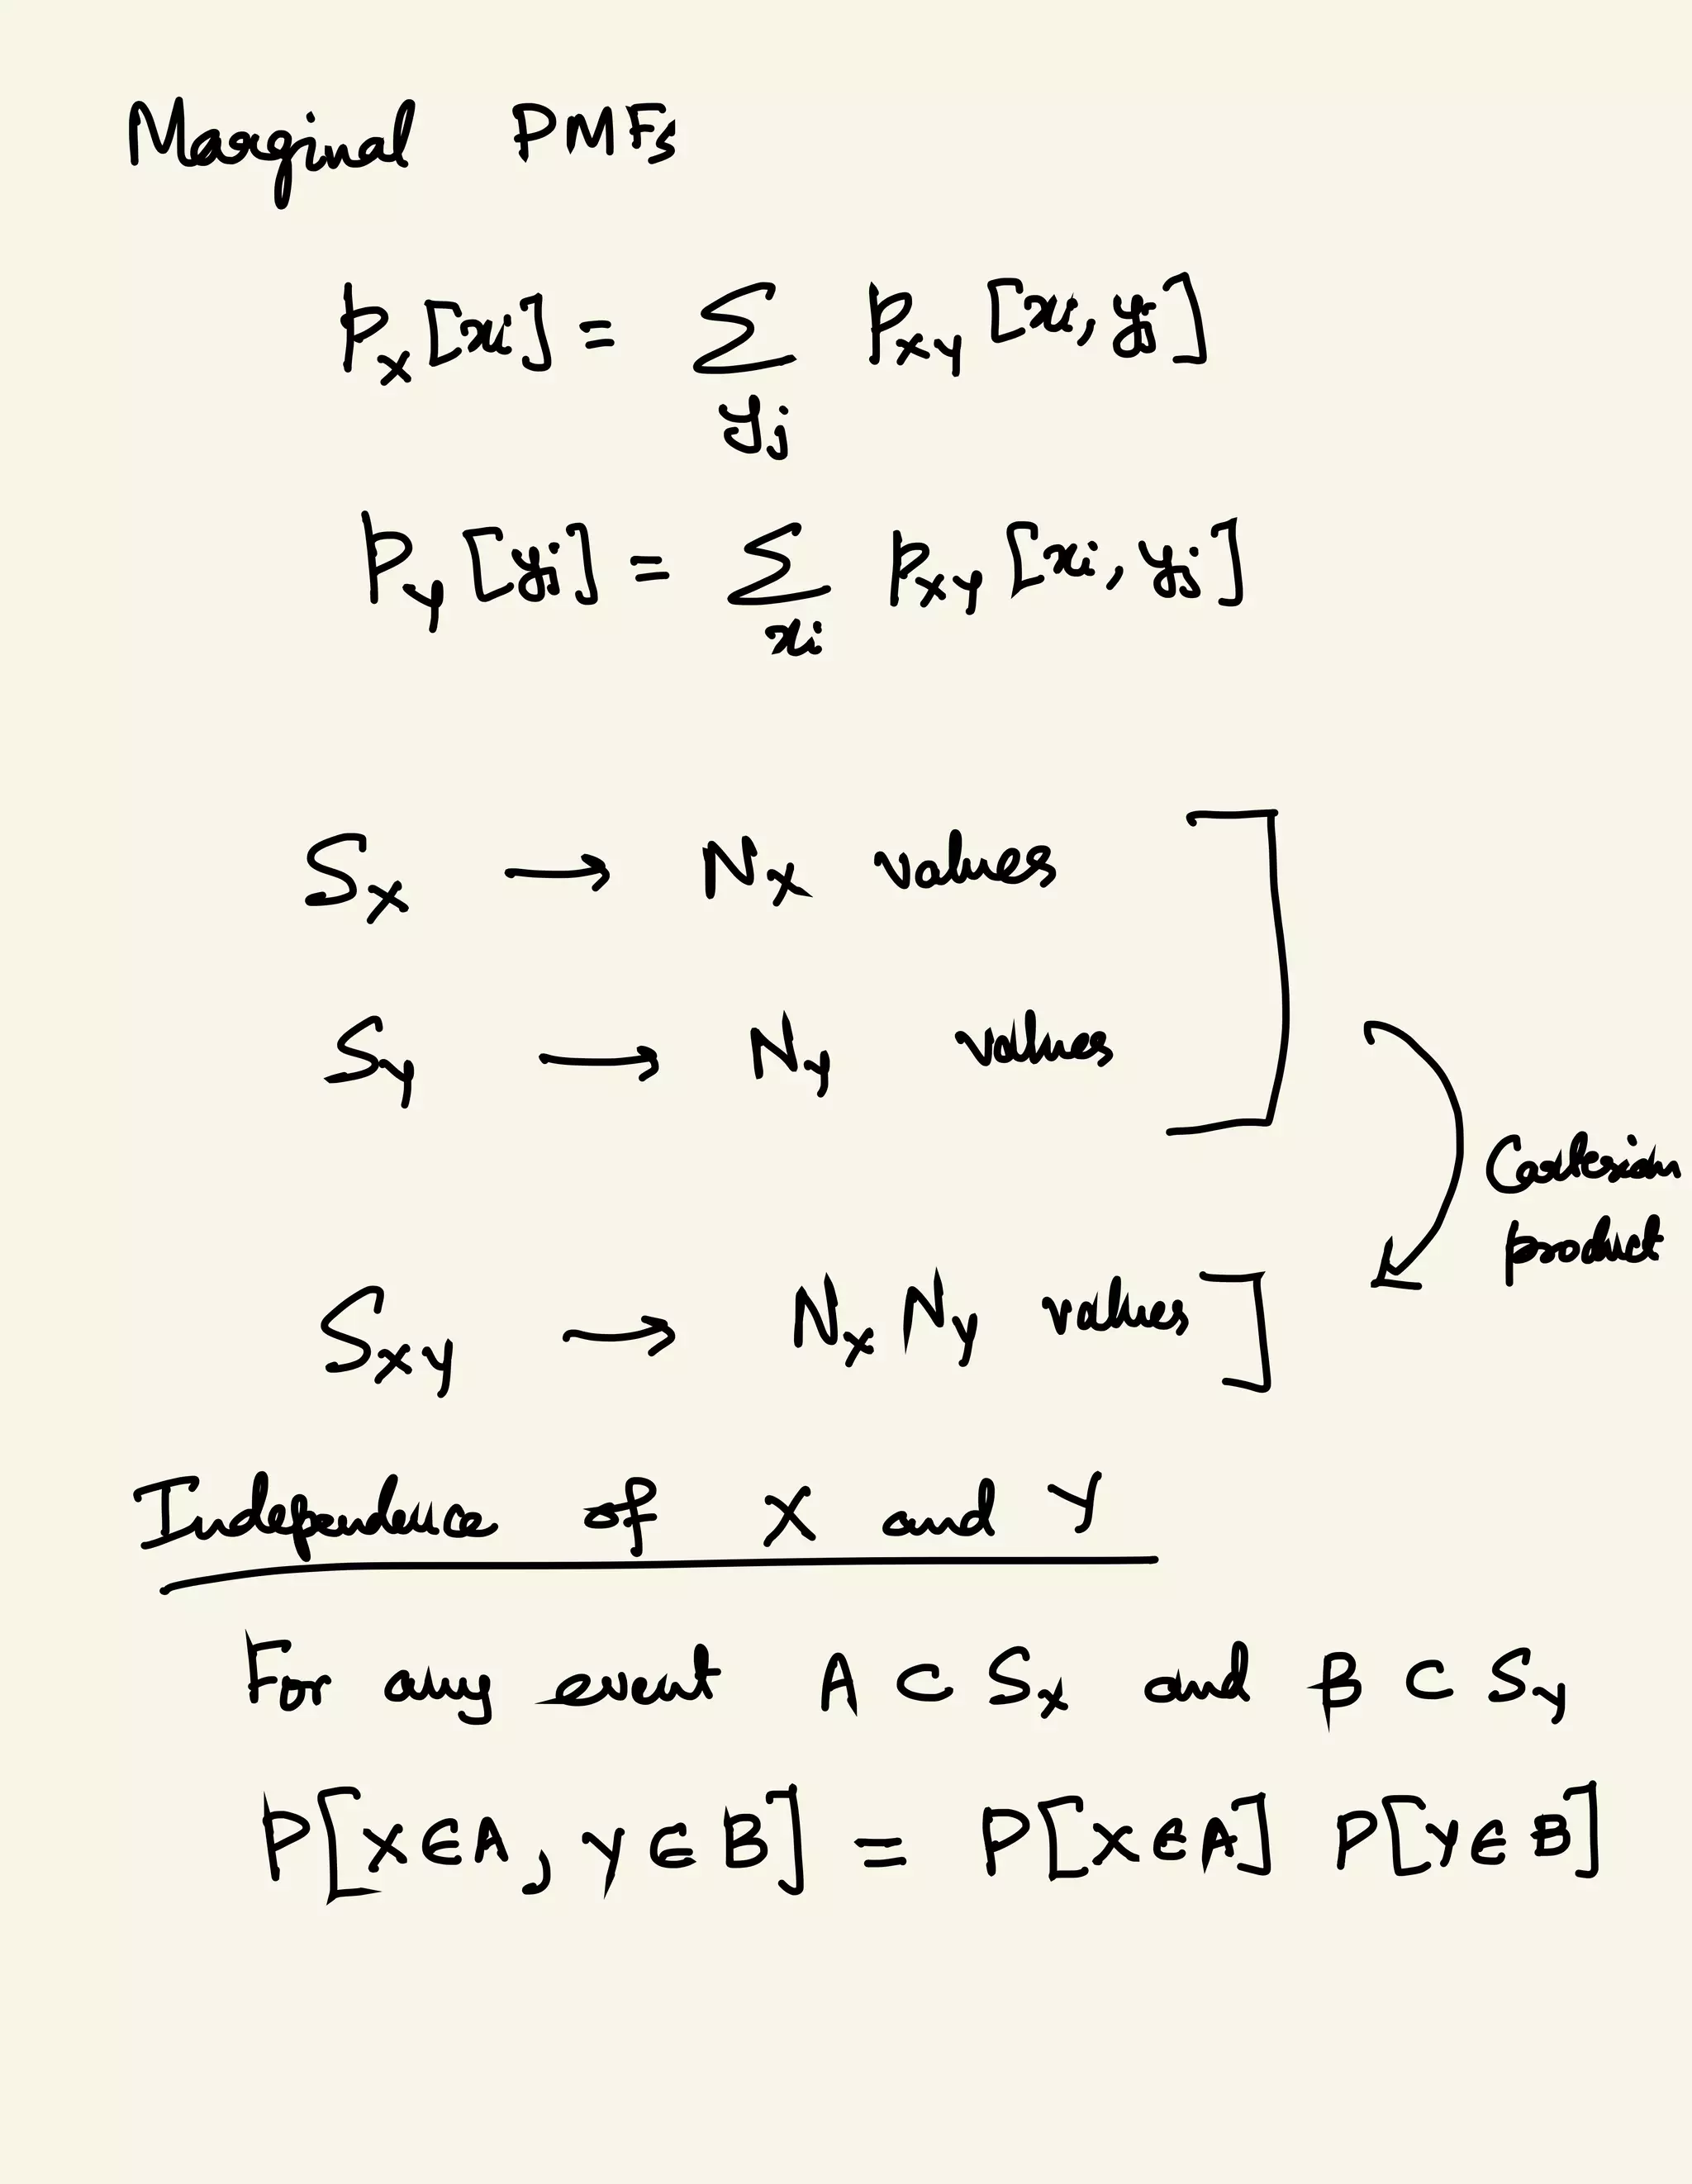 Marginal PMFs
p_X[x_i] = ∑_{y_j} p_{XY}[x_i, y_j]
p_Y[y_j] = ∑_{x_i} p_{XY}[x_i, y_j]
S_X → N_X values
S_Y → N_Y values
Cartesian
product
S_{XY} → N_X N_Y values
Independence of X and Y
For any event A ⊂ S_X and B ⊂ S_Y
P[X∈A, Y∈B] = P[X∈A] P[Y∈B]